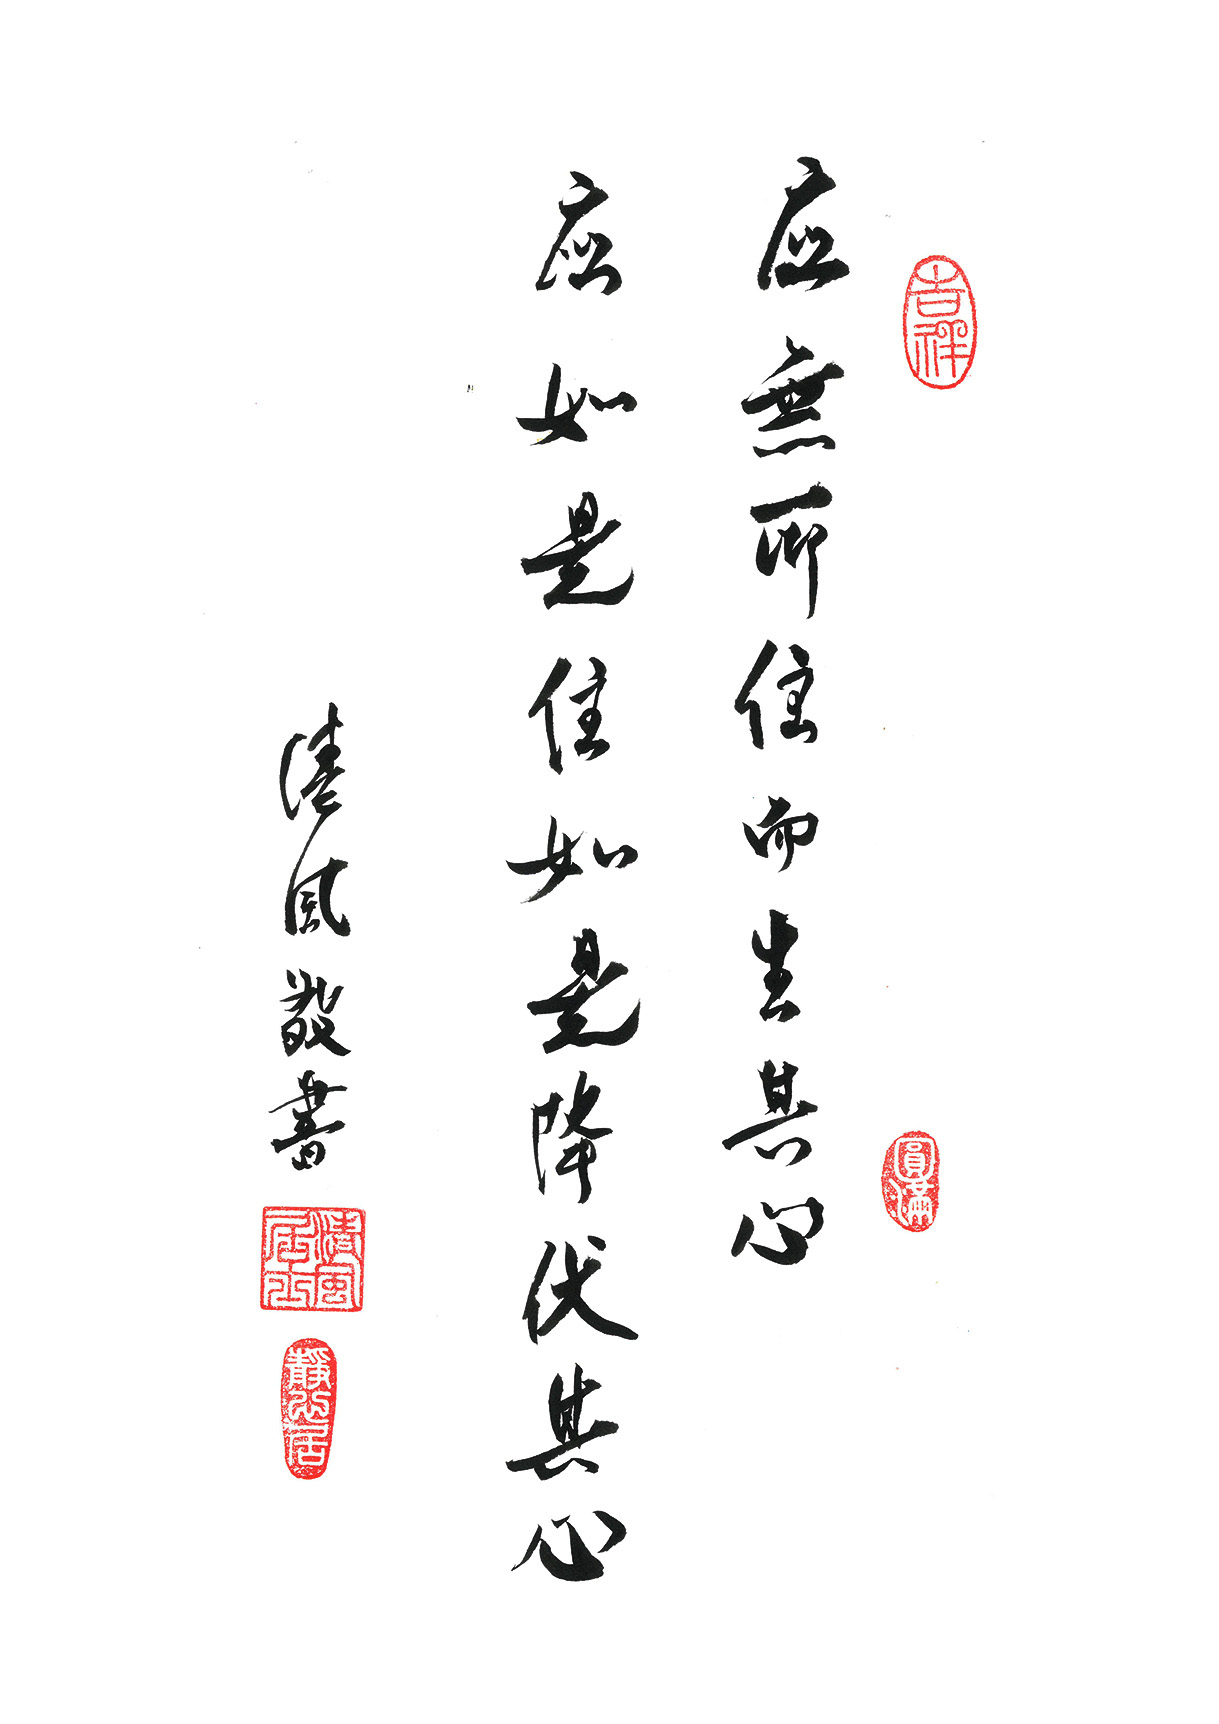 吉祥
应無所住而生其心
圓滿
应如是住如是降伏其心
清風敬書
清風居士
靜心居